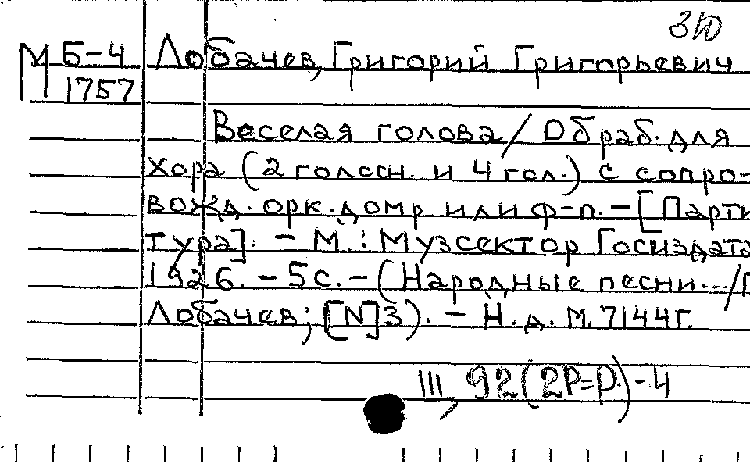 310
М Б-4 Лобачев, Григорий Григорьевич
1757
Веселая голова / Обраб. для
хора (2 голосн. и 4 гол.) с сопро-
вожд. орк. домр или ф-п. - [Парти
тура]. - М.: Музсектор Госиздата
1926. - 5 с. - (Народные песни... / Г
Лобачев; [N]3). - Н.д. М. 7144 г.
III, 92(2Р=Р)-4